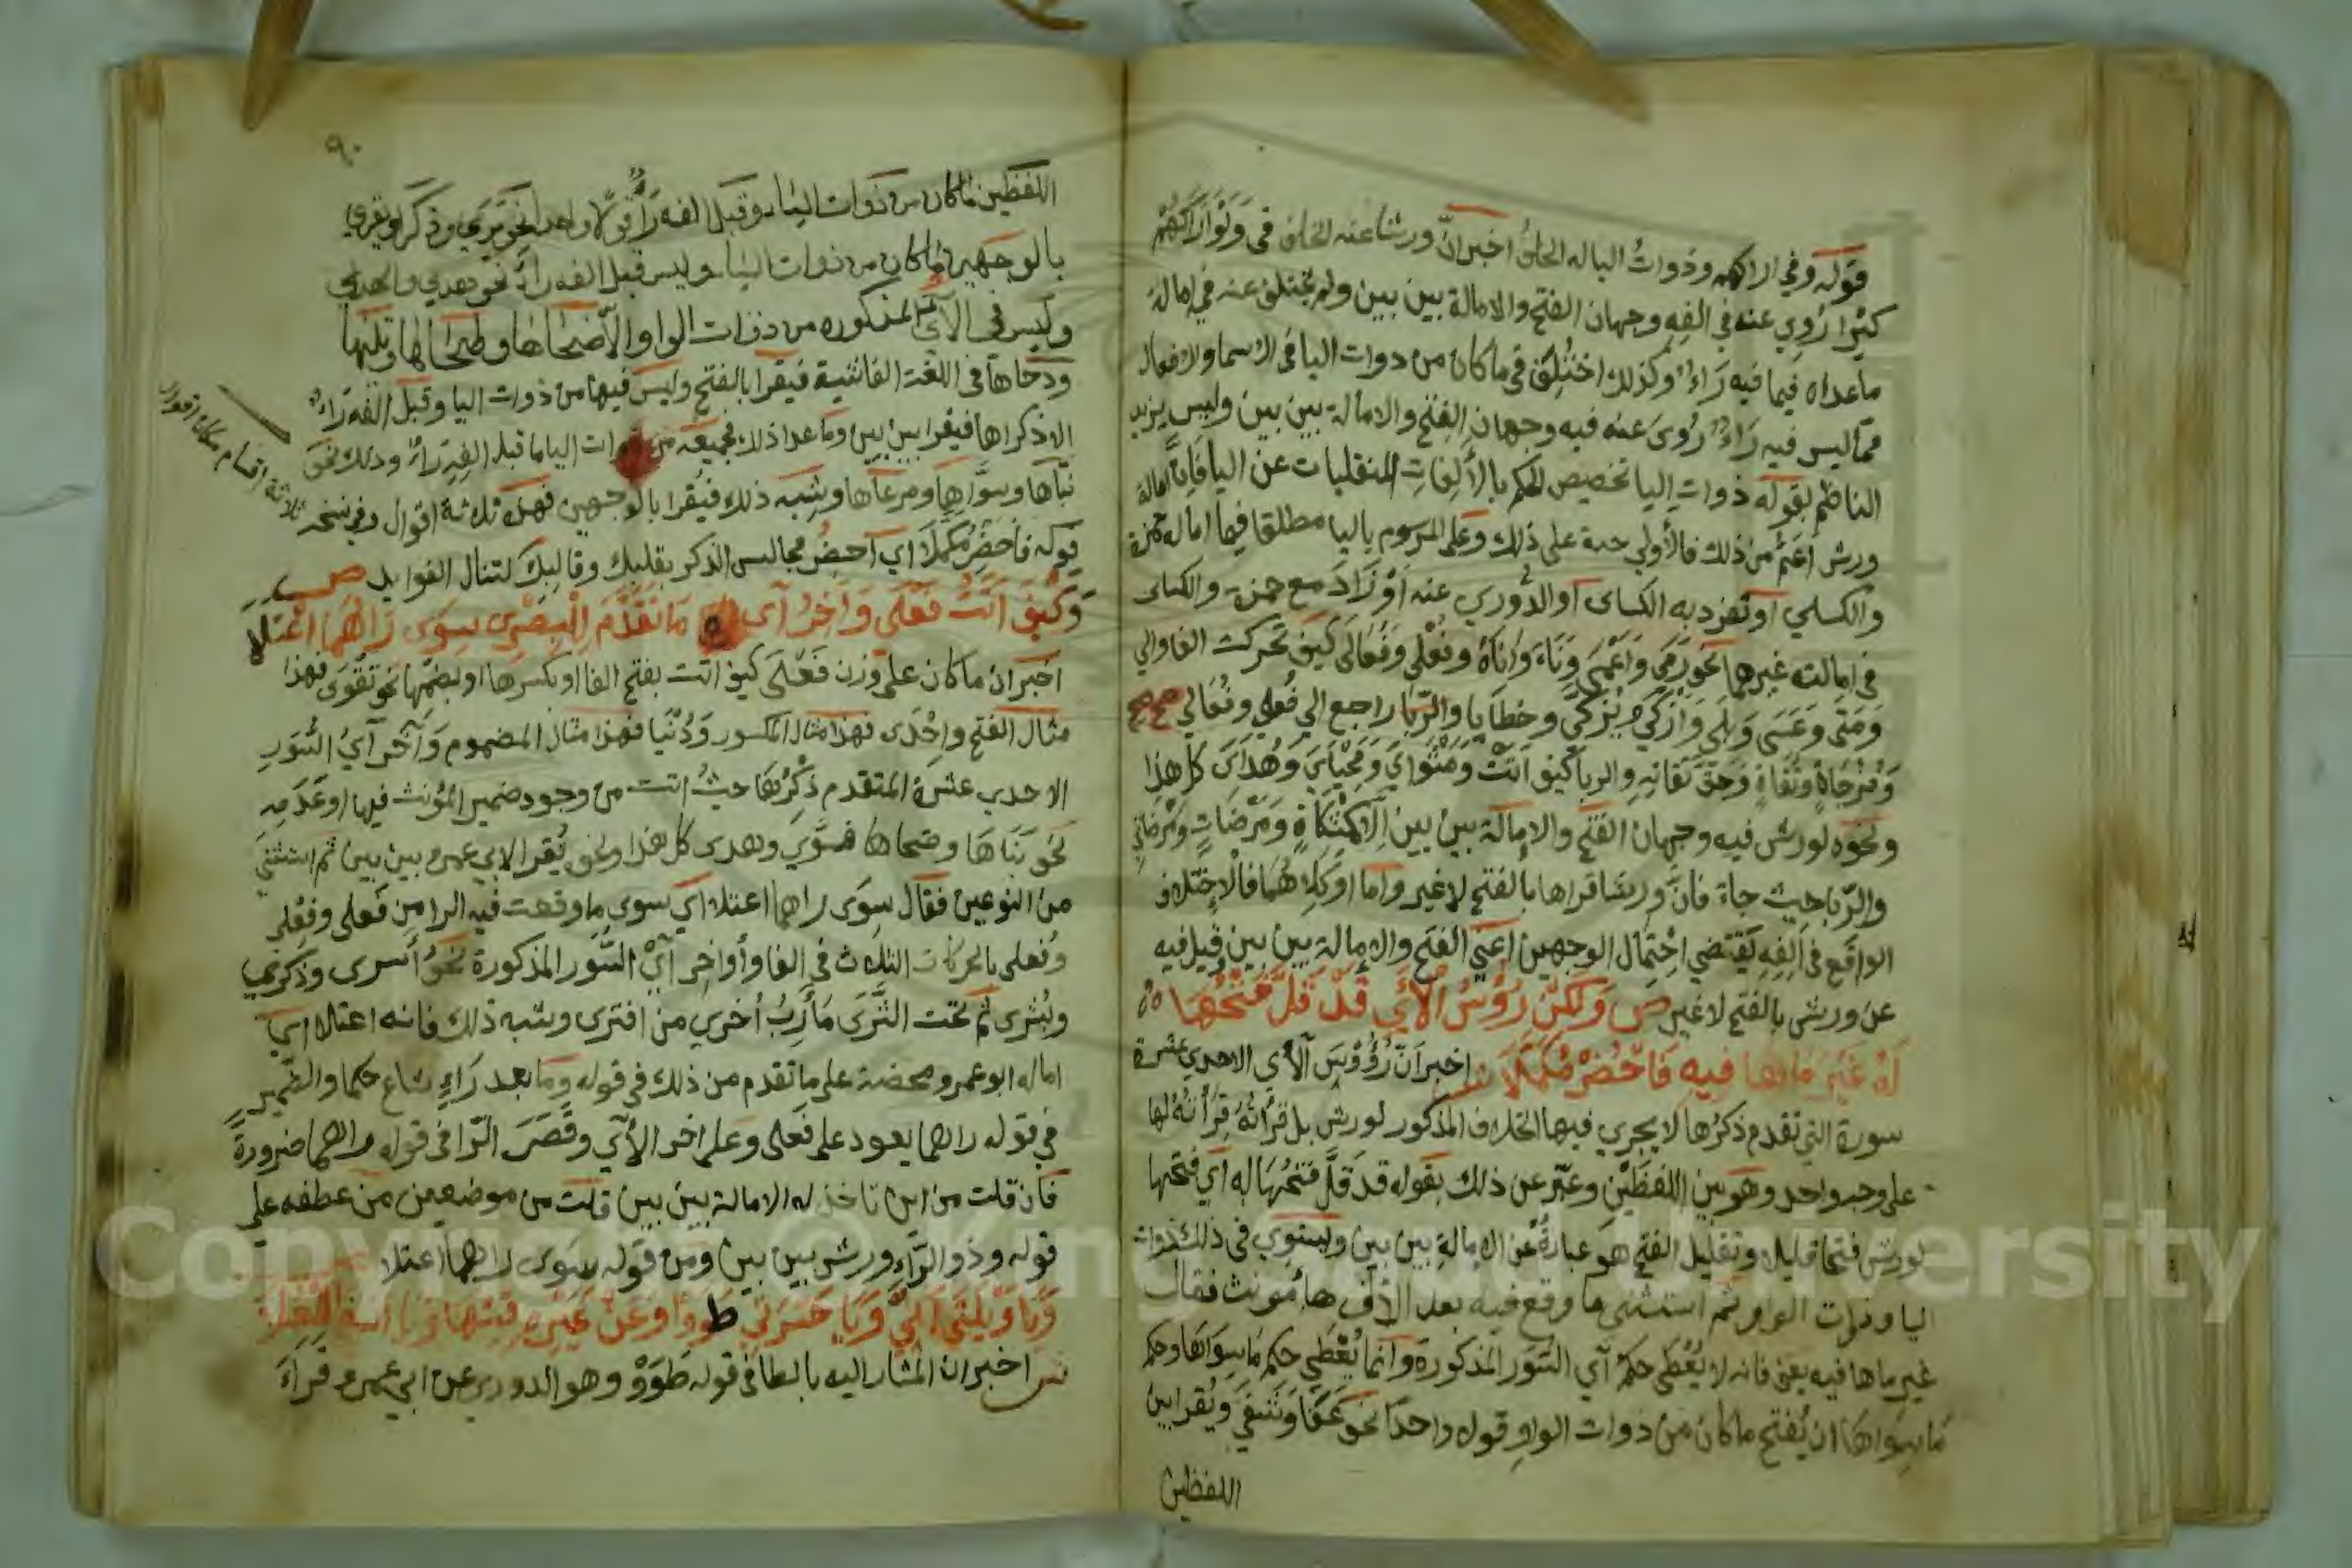 قوله وفي اراكهم وذوات اليا له الخلف اخبر ان ورشا عنه الخلف في وَلَوْ أَرَاكَهُمْ
كثيرا رُوِي عنه في الفه وجهان الفتح والامالة بين بين ولم يختلف عنه في امالة
ماعداه فيما فيه رَاء وكذلك اختُلِف في ما كان من ذوات اليا في الاسما والافعال
مما ليس فيه رَاء رُوى عنه فيه وجهان الفتح والامالة بين بين وليس يزيد
الناظم بقوله ذوات اليا تخصيص الحكم بالألِفاتِ المنقلبات عن اليا فان امالة
ورش اعَمُّ من ذلك فالأولى حمله على ذلك وعلى المرسوم باليا مطلقا فيما اماله حمزة
والكسائي او تفرد به الكساى او الدُّوري عنه أوْ زَادَ مع حمزة والكساى
في امالته غيرهما نحو رَمَى وَاَعْمَى وَنَاَى وَإنَاهُ وفُعْلَى وَفَعَالَى كيف تحركت الفا والى
وَمَتَى وَعَسَى وَبَلَى وَازْكَى ويُزكَّى وخطَايا والرّبا راجع الى فُعلى وفُعَالى صح صح
وَمُزْجَاةٍ وتُقَاةٍ وَحَقَّ تُقَاتِهِ والربا كيف اَتَتْ وَمَثْوَايَ وَمَحْيَايَ وَهُدَايَ كل هذا
ونحوه لورش فيه وجهان الفتح والإمالة بين بين إلَّا كمِشْكَاةٍ وَمَرْضَاتٍ ومَرْضَاتِي
والرّبا حيث جاءَ فانَّ ورشا قراها بالفتح لا غير واما اوْكِلَاهُمَا فالاخْتلاف
الواقع في اَلِفِهِ يَقتَضي احْتِمال الوجهين اعنَي الفتح والإمالة بين بين وقيل فيه
عن ورش بالفتح لا غير ص وَلَكِنْ رُؤسُ الْآيِ قَدْ قَلَّ فَتْحُهَا
لَهُ غَيْرَ مَا هَا فِيهِ فَاحْضُرْ مُكَمَّلَا ش اخبر اَنّ رُؤُوسَ الآي الاحدي عشرة
سورة التي تقدم ذكرُها لا يجري فيها الخلاف المذكور لورش بل قِرأتُهُ لها
على وجه واحد وهو بين اللفظَيْن وعبّر عن ذلك بقوله قد قلّ فَتحُهَا له اي فتحها
لورش فتحا قليلا وتقليل الفتح هو عبارةٌ عن الامالةِ بين بين ويستوي في ذلك ذوات
اليا وذوات الواو ثم استثنى ما وقع فيه بعد الألف هَا مُؤنث فقال
غير ما ها فيه يعني فانه لا يُعْطَى حكم آي السّوَر المذكورة وانما يُعْطَى حكم ما سِوَاهَا وحكم
مَا سِوَاهَا ان يُفتح ما كان من ذوات الواو قولا واحدًا نحو عَفَا ويُقرا بين
اللفظين
٩٠
اللفظين ما كان من ذَوات اليَاء وقبل الفه رَاءٌ قولًا واحدا نحو يَرَى وذكرى ويقرى
بالوجهين ما كان من ذوات اليَاء وليس قبل الفه راءٌ نحو هدي والهدي
وليس في الآي المذكوره من ذوات الواو الّا ضُحَاهَا وطَحَاهَا وتَلَيهَا
ودحاها في اللغة الفاشية فيقرا بالفتح وليس فيها من ذوات اليا وقبل الفه رَاء
الا ذكراها فيقرا بين بين وماعدا ذلك فجميعه من ذوات اليا ما قبل الفِهِ رَاءٌ وذلك نحو
بَناها وسَوَّاها ومرعَاها وشبه ذلك فيُقرا بالوجهين فهذه ثلاثة اقوال وفي نسخه
ثلاثة اقسام مكان اقوال
قوله فَاحْضُرْ مُكَمَّلَا اي احضُر مجالس الذكر بقلبك وقالبكَ لتنال الفوايد ص
وَكَيْفَ اَتَتْ فَعْلَى وَآخِرُ آىِ مَا تَقَدَّمَ لِلْبَصْرِي سِوَى رَاهُمَا اعْتَلَا
اخبر ان ما كان على وزن فَعْلَى كيف اتت بفتح الفا او بكسرها او بضمها نحو تَقْوَى فهذا
مثال الفتح واِحْدَى فهذا مثال المكسور ودُنْيَا فهذا مثال المضموم وَآخر آيُ السُّوَرِ
الاحدي عشرة المتقدم ذِكْرُهَا حيثُ اتت من وجود ضمير المؤنث فيها او عَدَمِهِ
نحو بَنَاهَا وضحاها فسَوَّي وهدى كل هذا ونحوه يُقرا لابي عمرو بين بين ثم استثنى
من النوعين فقال سِوَى راهما اعتلا اي سوى ما وقعت فيه الرا من فَعلى وفِعْلى
وفُعلى بالحركات الثلاث في الفا وأواخِر آيْ السّوَر المذكورة نحوُ أسرى وذكرى
وبُشرى ثم تحت الثَّرَى مَأرِبُ اُخرى من افترى وشبه ذلك فانه اعتلا اي
اماله ابو عمرو محضة على ما تقدم من ذلك في قوله وما بعد رَاءٍ شاع حكما والضمير
في قوله راهما يعود على فَعلى وعلى اخر الآي وقَصَرَ الرّا في قوله راهما ضرورةً
فان قلت من اين تاخذ له الامالة بين بين قلت من موضعين من عطفه على
قوله وذو الرّاءِ ورش بين بين ومن قوله سِوَى راهما اعتلا
وَيَا وَيْلَتَى اَنَّي وَيَا حَسْرَتَى طَوَوْا وَعَنْ غَيْرِهِ قِسْهَا وَيَا اسفى الْعُلَا
ش اخبر ان المشار اليه بالطا في قوله طَوَوْا وهو الدوري عن ابي عمرو قراءَ
Copyright © King Saud University